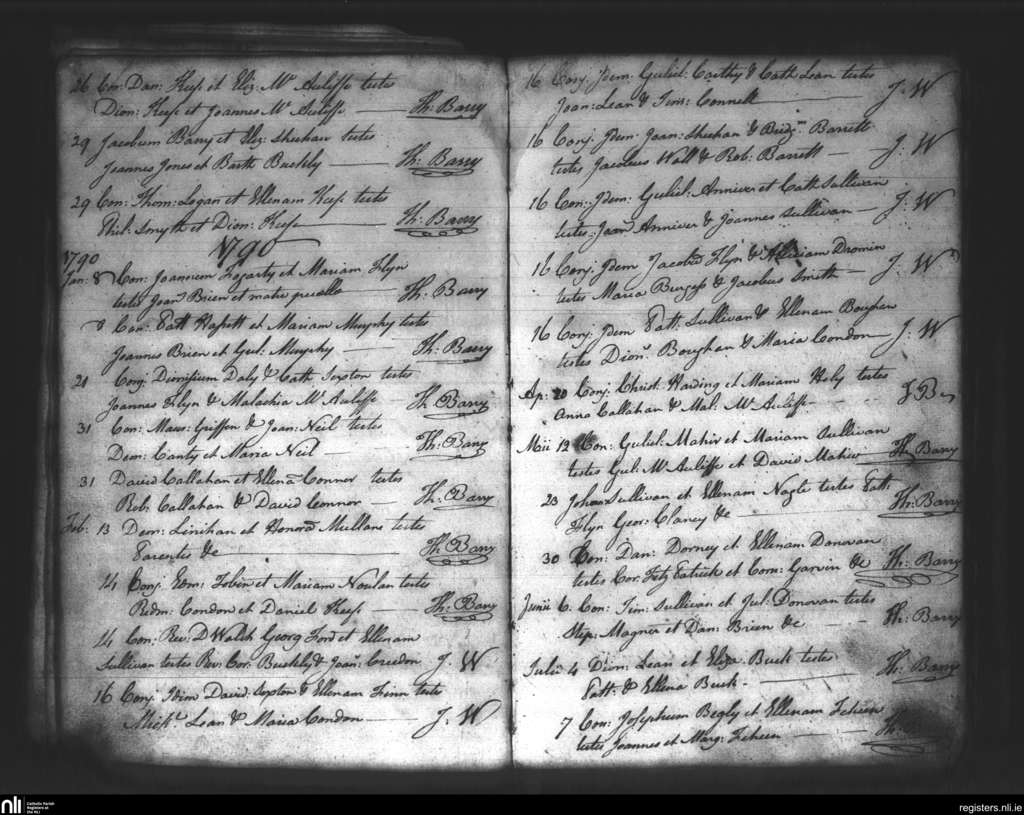 26 Con: Dan: Keefe et Eliz: Mc Auliffe testes
Dion: Keefe et Joannes Mc Auliffe — Th: Barry
29 Jacobum Barry et Eliz: Sheehan testes
Joannes Jones et Barth Buckly — Th: Barry
29 Con: Thom: Logan et Ellenam Keefe testes
Phil: Smyth et Dion: Keefe — Th: Barry
1790
1790
Jan: 8 Con: Joannem Fogarty et Mariam Flyn
testes Joans Brien et mater puella — Th: Barry
8 Con: Patt Hassett et Mariam Murphy testes
Joannes Brien et Gul: Murphy — Th: Barry
21 Conj: Dionisium Daly & Cath: Sexton testes
Joannes Flyn & Malachia Mc Auliffe — Th: Barry
31 Con: Maur: Griffen & Joan: Neil testes
Dem: Canty et Maria Neil — Th: Barry
31 David Callahan et Ellena Connor testes
Rob: Callahan & David Connor — Th: Barry
Feb: 13 Dem: Linihan et Honora Mullane testes
Parentes &c — Th: Barry
14 Conj: Edm: Tobin et Mariam Noulan testes
Redm: Condon et Daniel Keefe — Th: Barry
14 Con: Rev: D Walsh Georg Ford et Ellenam
Sullivan testes Rev: Cor: Buckly & Joan: Creedon J. W
16 Conj: Idem David: Sexton & Ellenam Finn testes
Michl Lean & Maria Condon — J. W
16 Conj: Idem: Guliel: Carthy & Cath Lean testes
Joan: Lean & Timo: Connell — J. W
16 Conj: Idem: Joan: Sheehan & Bridgm Barrett
testes Jacobus Wall & Rob: Barrett — J. W
16 Con: Idem: Guliel: Anniver et Cath Sullivan
testes Joans Anniver & Joannes Sullivan — J. W
16 Conj: Idem Jacobm Flyn & Miriam Dromin
testes Maria Burgess & Jacobus Smith — J. W
16 Conj: Idem Patt: Sullivan & Ellenam Boughan
testes Dion: Boughan & Maria Condon — J. W
Ap: 20 Conj: Christ: Harding et Mariam Hely testes
Anna Callahan & Mal: Mc Auliffe — J B
Maii 12 Con: Guliel: Mahir et Mariam Sullivan
testes Gul: Mc Auliffe et David Mahir — Th: Barry
23 Johan Sullivan et Ellenam Nagle testes Patt
Flyn Geor: Clancy &c — Th: Barry
30 Con: Dan: Dorney et Ellenam Donovan
testes Cor: Fitz Patrick et Corn: Garvin &c Th: Barry
Junii 6. Con: Tim: Sullivan et Jul: Donovan testes
Step: Magner et Dan: Brien &c — Th: Barry
Julii 4 Dion: Lean et Eliza: Buck testes
Patt: & Ellena Buck — Th: Barry
7 Con: Josephum Begly et Ellenam Fehien
testes Joannes et Marg: Fehien — Th:
nli
Catholic Parish
Registers at
the NLI
registers.nli.ie